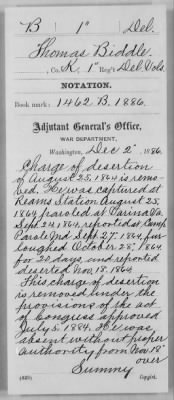 B 1" Del.
Thomas Biddle
, Co. K, 1" Reg't Del. Vols.
NOTATION.
Book mark: 1462 B. 1886.
Adjutant General's Office,
WAR DEPARTMENT,
Washington, Dec 2", 1886.
Charge of desertion
of August 25, 1864 is remo-
ved. He was captured at
Reams Station August 25,
1864, paroled at Varina Va.
Sept. 24 1864, reported at Camp
Parole Md. Sept. 27, 1864, fur-
loughed October 28, 1864
for 20 days, and reported
deserted Nov. 18, 1864.
This charge of desertion
is removed under the
provisions of the act
of Congress approved
July 5, 1884. He was
absent without proper
authority from Nov 18"
over
Summy
Copyist.